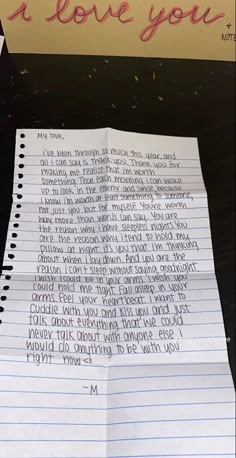 I love you
+
NOTE
My love,
I've been through so much this year, and
all I can say is thank you. Thank you for
making me realize that I'm worth
something. Than each morning I can wake
up to look in the mirror and smile because
I know I'm worth at least something to someone,
not just you but for myself. You're worth
way more than words can say. You are
the reason why I have sleepless nights. You
are the reason why I tend to hold my
pillow at night. It's you that I'm thinking
about when I lay down. And you are the
reason I can't sleep without saying goodnight.
I wish I could be in your arms. I wish you
could hold me tight. Fall asleep in your
arms. Feel your heartbeat. I want to
cuddle with you and kiss you and just
talk about everything that we could
never talk about with anyone else. I
would do anything to be with you
right now <3
-M